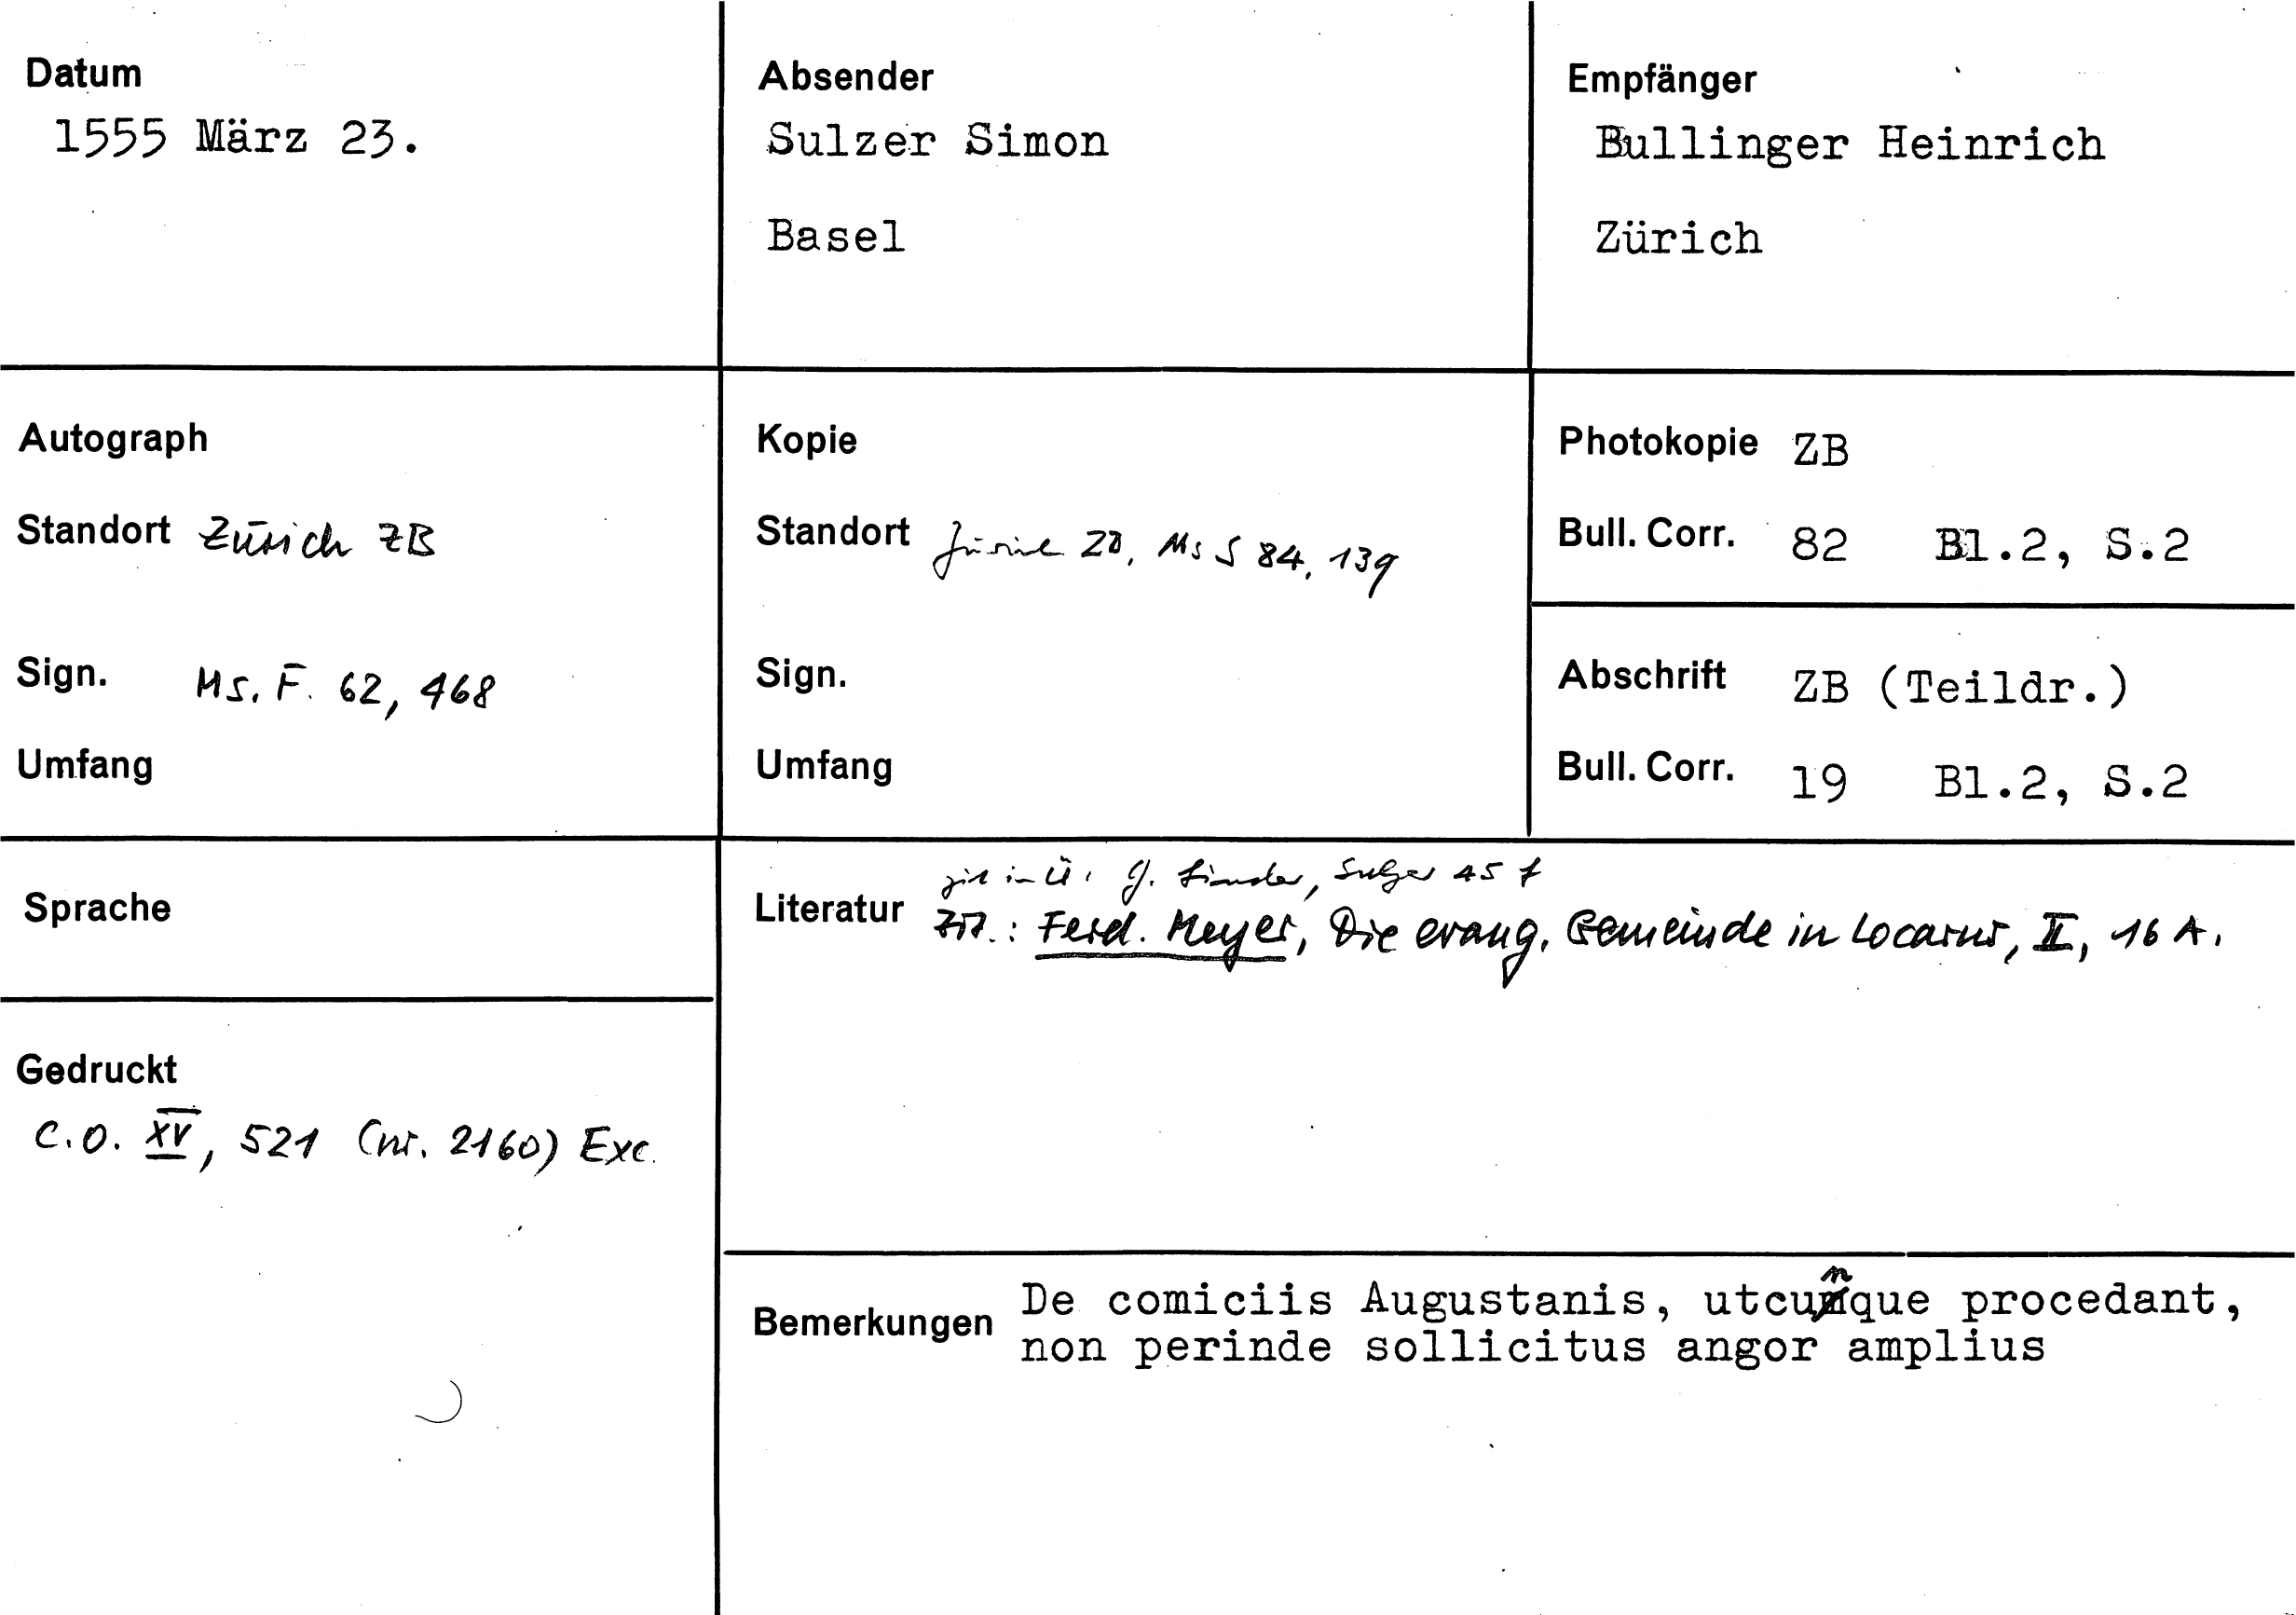 Datum
1555 März 23.
Absender
Sulzer Simon
Basel
Empfänger
Bullinger Heinrich
Zürich
Autograph
Standort Zürich ZB
Sign. Ms. F. 62, 468
Umfang
Kopie
Standort Zürich ZB, Ms S 84, 139
Sign.
Umfang
Photokopie ZB
Bull. Corr. 82 Bl.2, S.2
Abschrift ZB (Teildr.)
Bull. Corr. 19 Bl.2, S.2
Sprache
Gedruckt
C.O. XV, 521 (nr. 2160) Exc.
zit in Ü: G. Linder, Sulzer 45 f
Literatur Zit.: Ferd. Meyer, Die evang. Gemeinde in Locarno, II, 16 A.
Bemerkungen De comiciis Augustanis, utcunque procedant,
non perinde sollicitus angor amplius